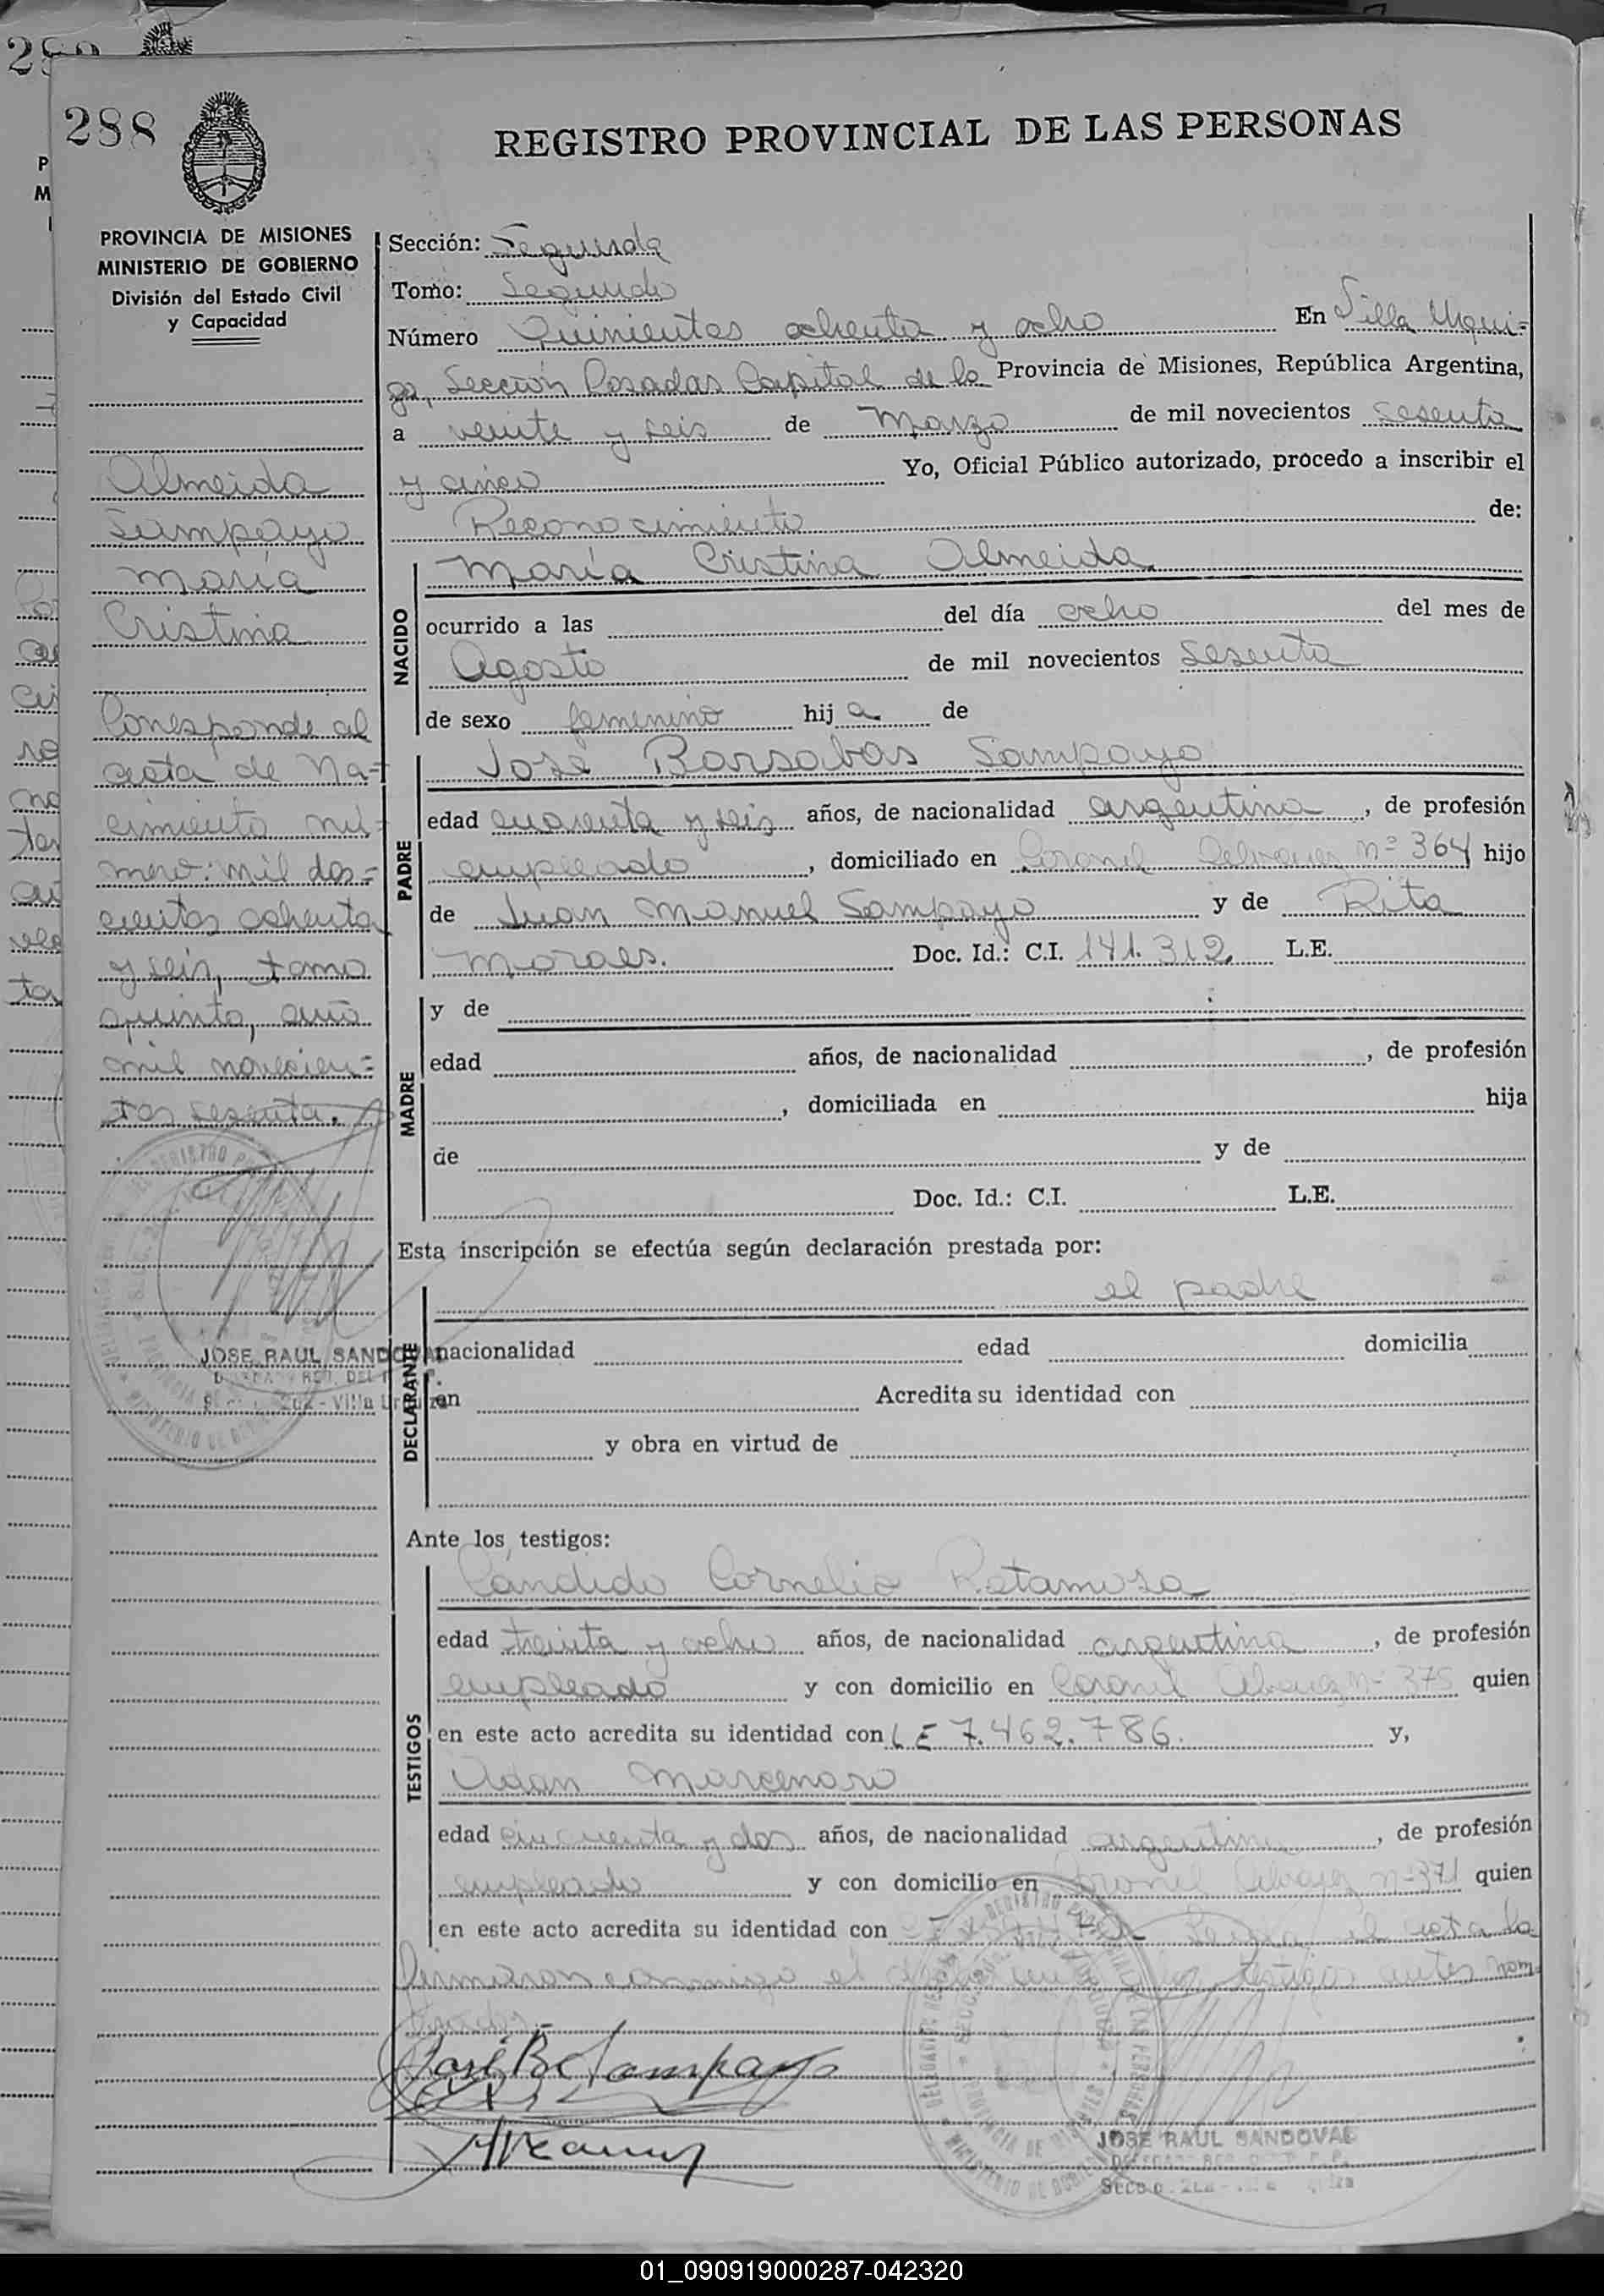 288
REGISTRO PROVINCIAL DE LAS PERSONAS
PROVINCIA DE MISIONES
MINISTERIO DE GOBIERNO
División del Estado Civil
y Capacidad
Almeida
Sampayo
María
Cristina
Corresponde al
acta de Na=
cimiento nú=
mero: mil dos=
cientos ochenta
y seis, tomo
quinto, año
mil novecien=
tos sesenta.
JOSE RAUL SANDOVAL
Sección: Segunda
Tomo: Segundo
Número Quinientos ochenta y ocho En Villa Urqui=
za, Sección Posadas Capital de la Provincia de Misiones, República Argentina,
a veinte y seis de Marzo de mil novecientos sesenta
y cinco Yo, Oficial Público autorizado, procedo a inscribir el
Reconocimiento de:
NACIDO
María Cristina Almeida
ocurrido a las del día ocho del mes de
Agosto de mil novecientos sesenta
de sexo femenino hija de
PADRE
José Barsabas Sampayo
edad cuarenta y seis años, de nacionalidad argentina, de profesión
empleado, domiciliado en Coronel Alvarez nº 364 hijo
de Juan Manuel Sampayo y de Rita
Moraes. Doc. Id.: C.I. 141.312. L.E.
MADRE
y de
edad años, de nacionalidad , de profesión
, domiciliada en hija
de y de
Doc. Id.: C.I. L.E.
Esta inscripción se efectúa según declaración prestada por:
DECLARANTE
el padre
nacionalidad edad domicilia
en Acredita su identidad con
y obra en virtud de
Ante los testigos:
TESTIGOS
Cándido Cornelio Retamosa
edad treinta y ocho años, de nacionalidad argentina, de profesión
empleado y con domicilio en Coronel Alvarez nº 375 quien
en este acto acredita su identidad con L E 7.462.786. y,
Adan Marcenaro
edad cincuenta y dos años, de nacionalidad argentina, de profesión
empleado y con domicilio en Coronel Alvarez nº 371 quien
en este acto acredita su identidad con Leida el acta la
firmaron conmigo el testigos antes nom
brados
José B Sampayo
JOSE RAUL SANDOVAL
01_090919000287-042320